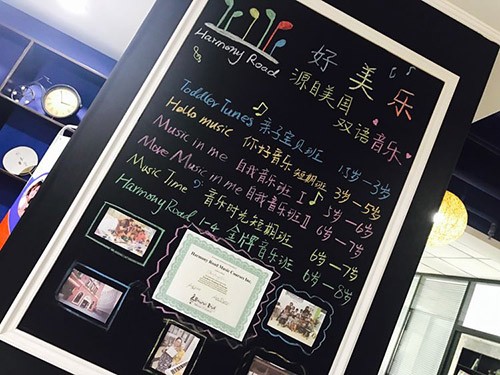 Harmony Road
好美乐
源自美国
双语音乐
Toddler Tunes 亲子宝贝班 1.5岁-3岁
Hello music 你好音乐短期班 3岁-5岁
Music in me 自我音乐班 I 5岁-6岁
More Music in me 自我音乐班 II 6岁-7岁
Music Time 音乐时光短期班 6岁-7岁
Harmony Road 1-4 金牌音乐班 6岁-8岁
Harmony Road Music Courses Inc.